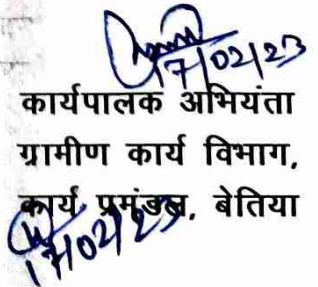 17/02/23
कार्यपालक अभियंता
ग्रामीण कार्य विभाग,
कार्य प्रमंडल, बेतिया
17/02/23